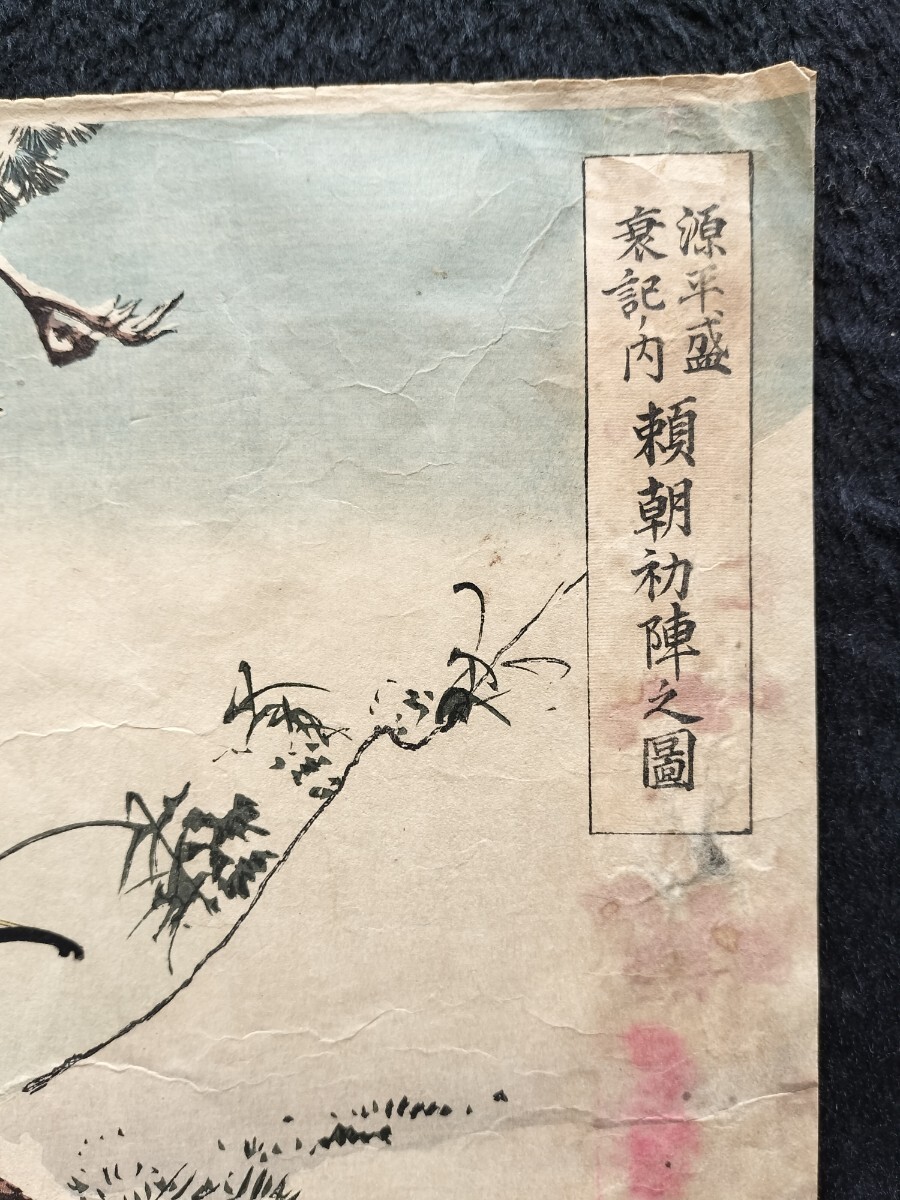 源平盛
衰記ノ内
頼朝初陣之圖